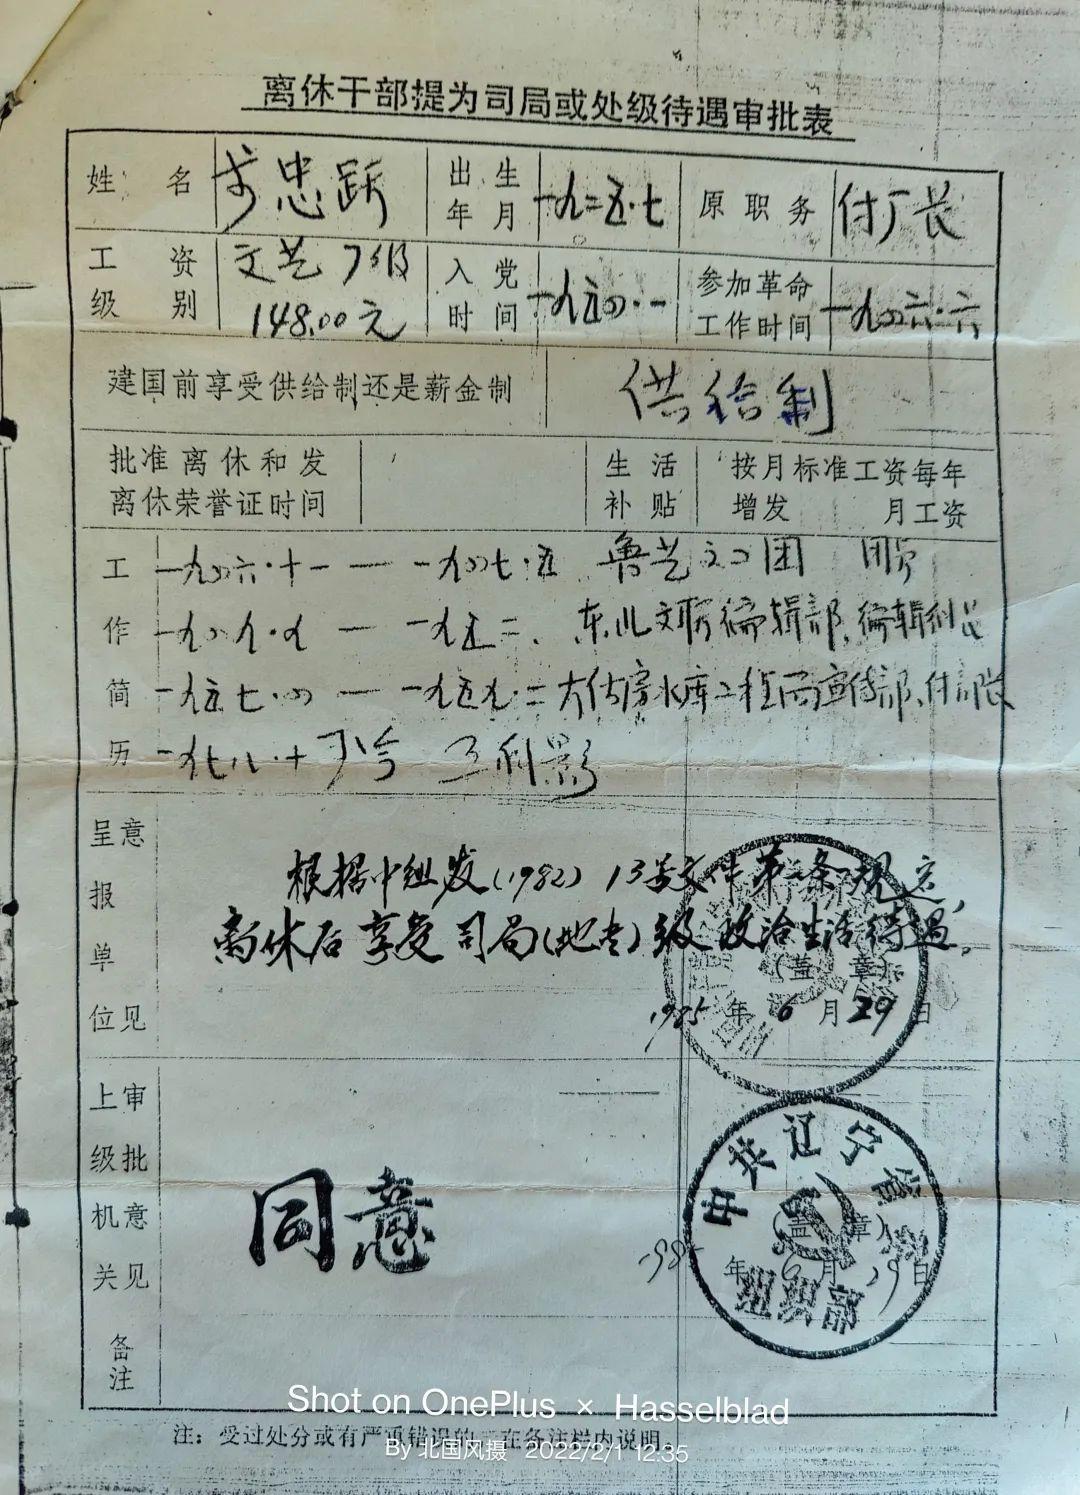 离休干部提为司局或处级待遇审批表
姓名 忠跃 出生年月 一九二五·七 原职务 付厂长
工资级别 文艺7级 148.00元 入党时间 一九五四·一 参加革命工作时间 一九四六·六
建国前享受供给制还是薪金制 供给制
批准离休和发离休荣誉证时间 生活补贴 按月标准工资每年增发 月工资
工作简历
一九四六·十一 — 一九四七·五 鲁艺文工团 团员
一九四九·九 — 一九五二、东北文联编辑部、编辑
一九五七·四 — 一九五九·二 大伙房水库工程局宣传部、付部长
一九七八·十 于今 辽科影
呈报单位意见
根据中组发(1982)13号文件第二条规定,
离休后享受司局(地专)级政治生活待遇。
(盖章)
1985年6月29日
上级机关审批意见
同意
中共辽宁省委
组织部
(盖章)
1985年6月29日
备注
注：受过处分或有严重错误的，在备注栏内说明。
Shot on OnePlus × Hasselblad
By 北国风摄 2022/2/1 12:35